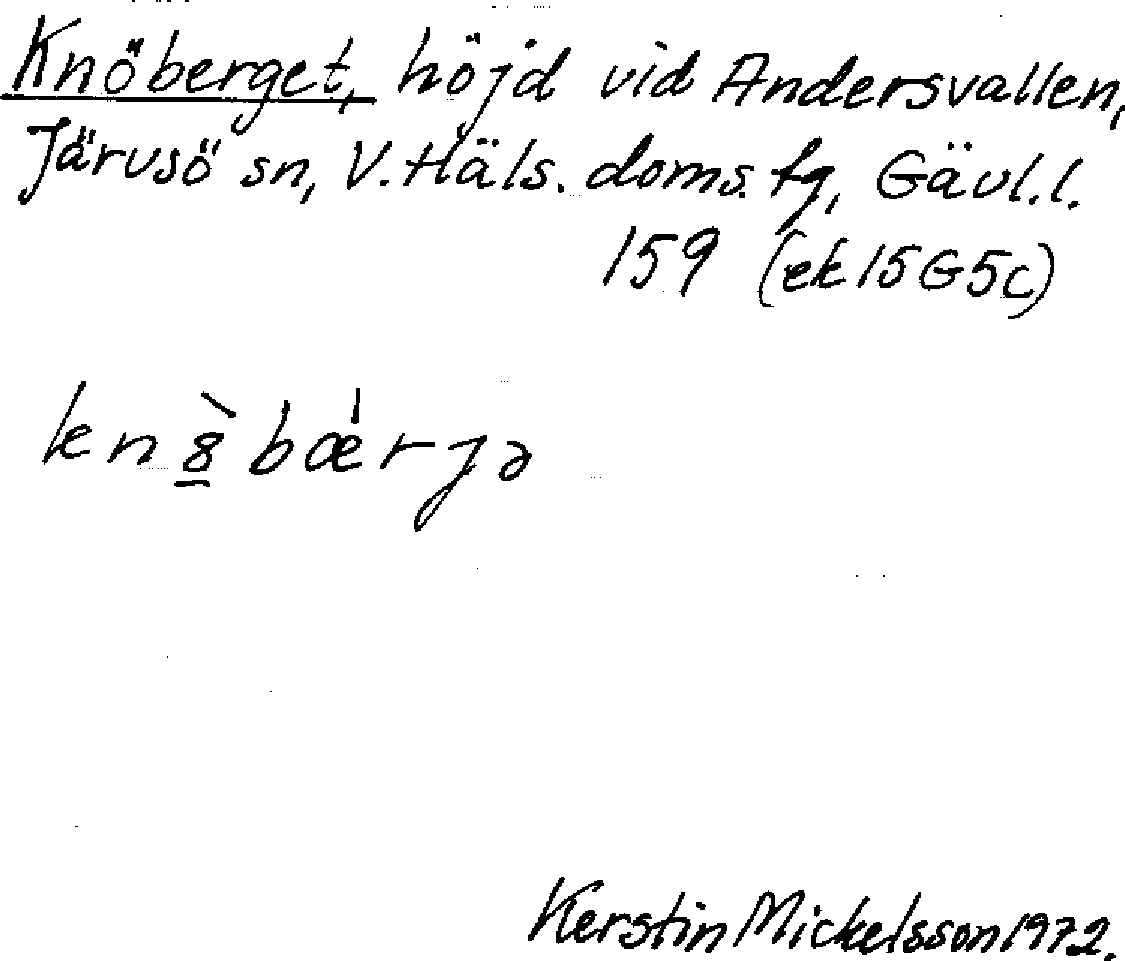 Knöberget, höjd vid Andersvallen,
Järvsö sn, V. Häls. doms. fg, Gävl.l.
159 (ek 15G5c)
kn8̲̀bǽrjə
Kerstin Mickelsson 1972.